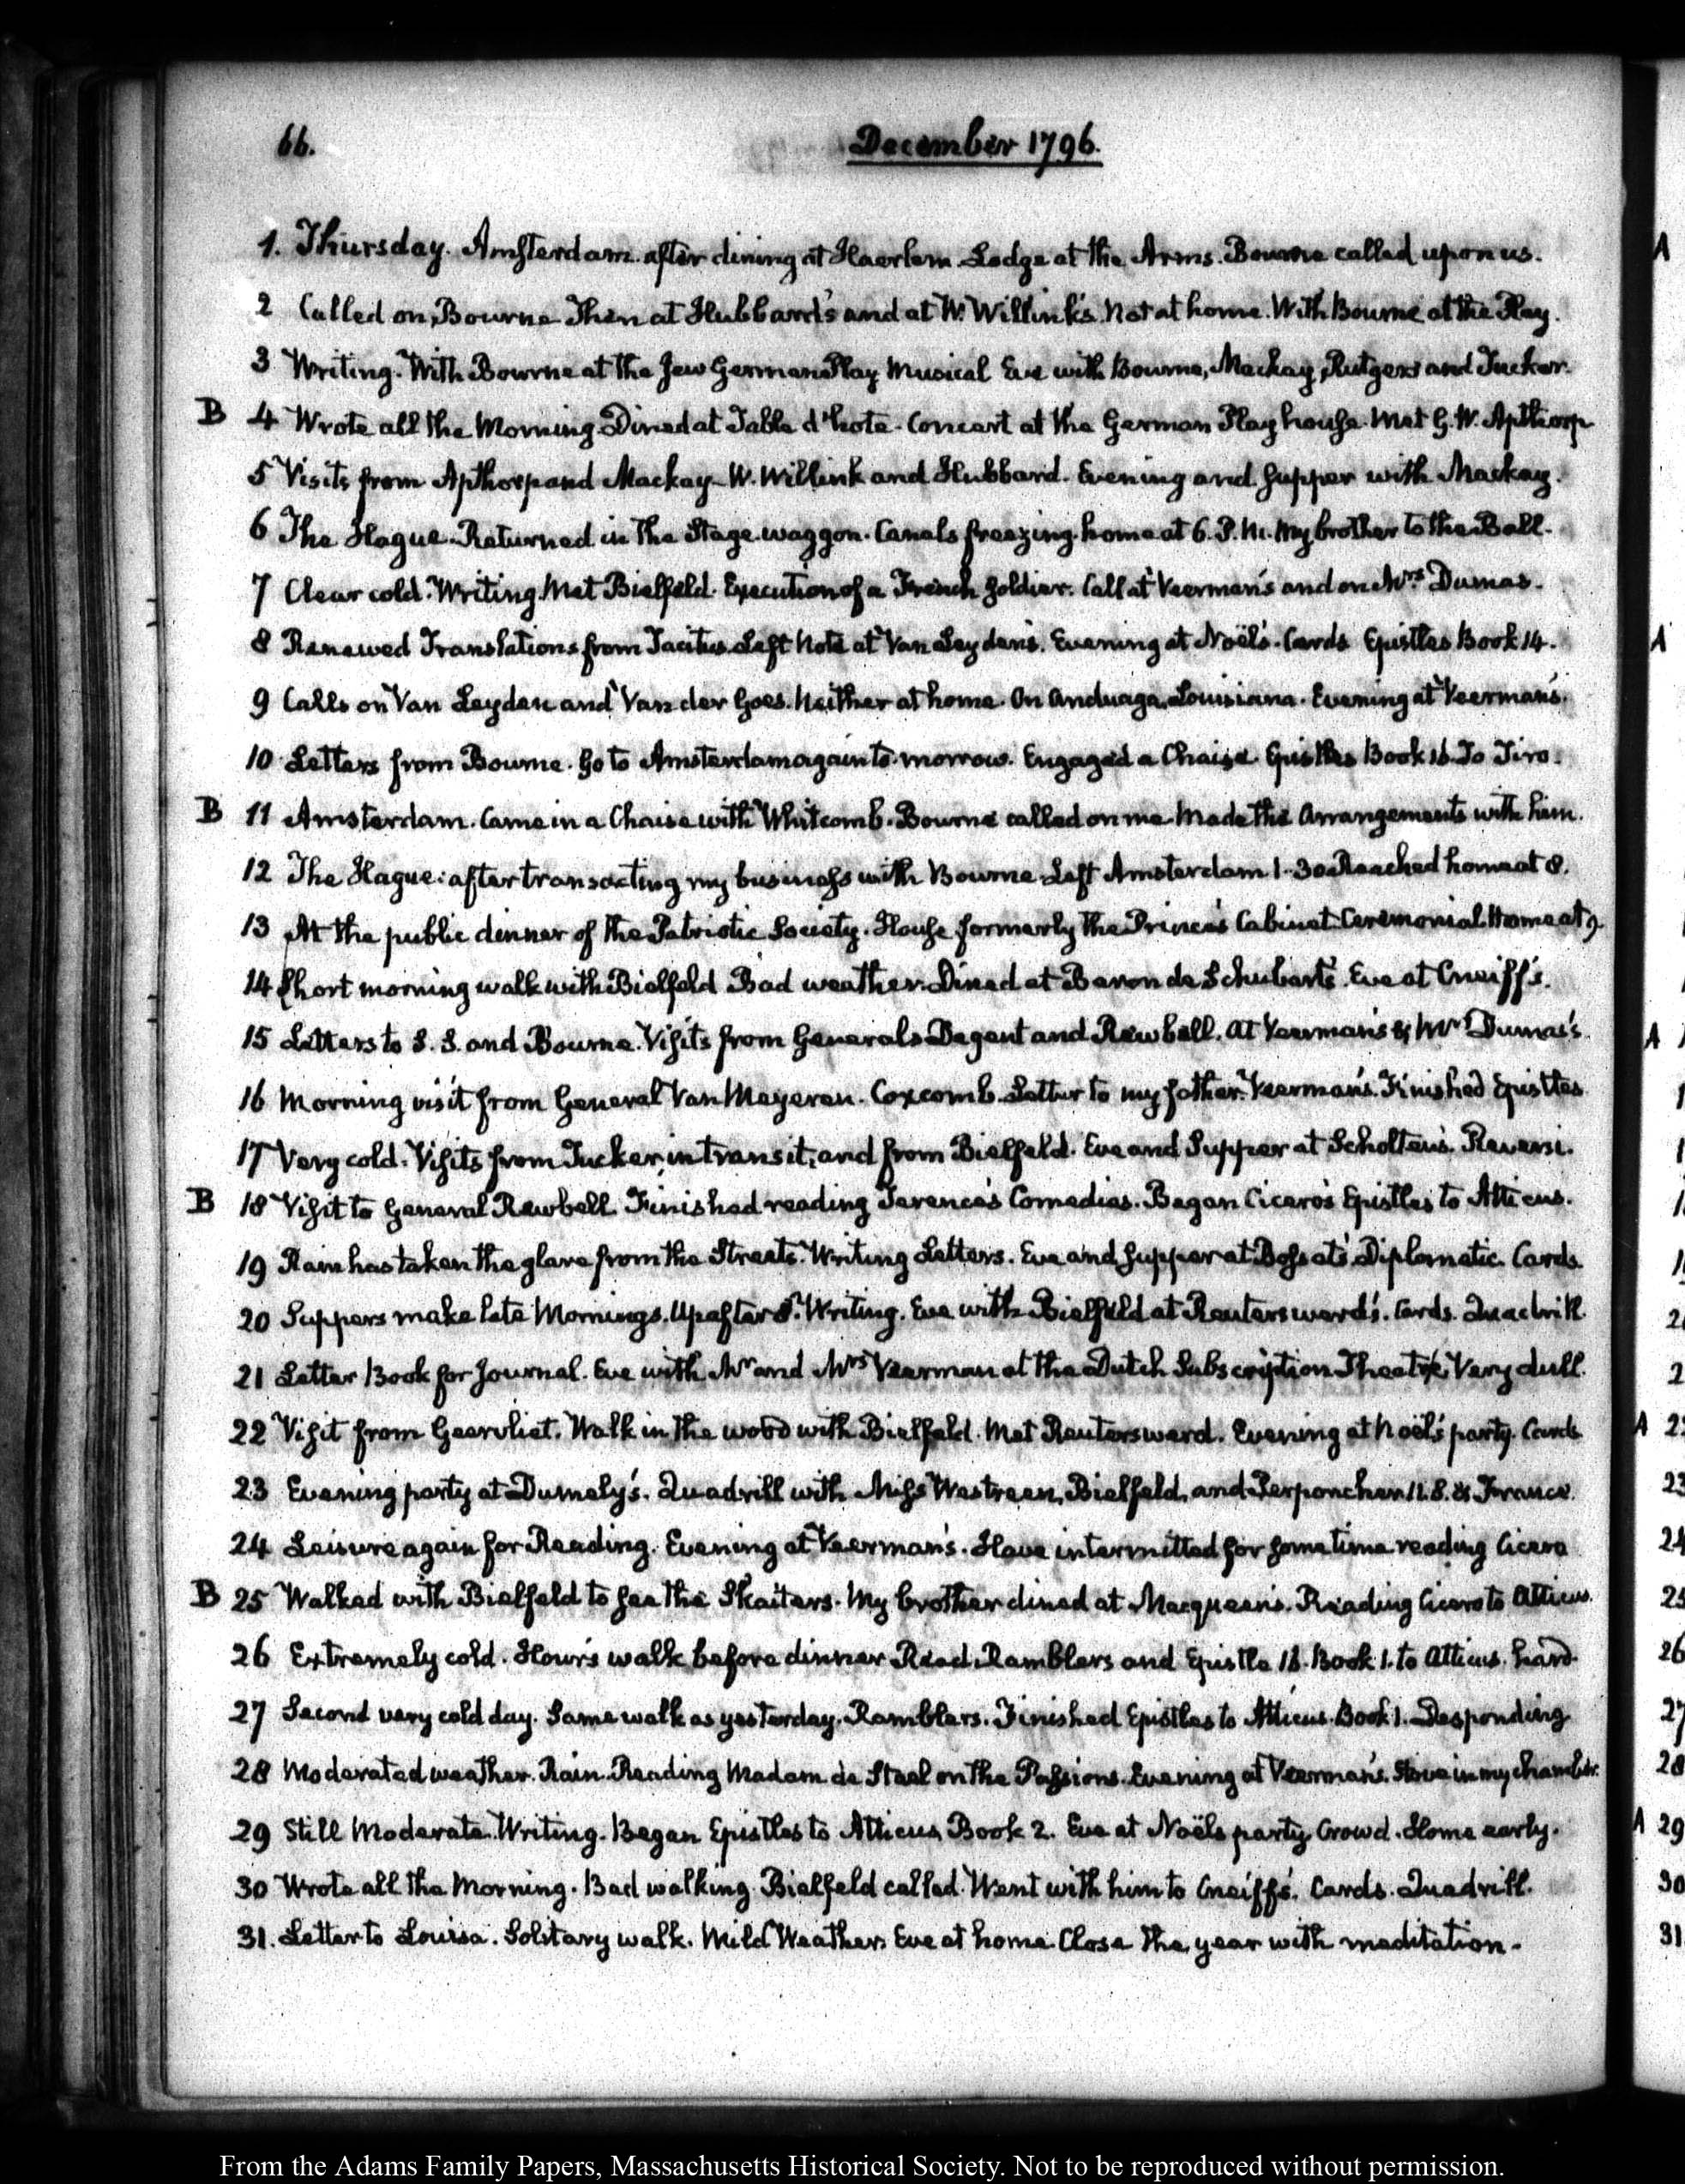 66.
December 1796.
1. Thursday. Amsterdam. after dining at Haerlem. Lodge at the Arms. Bourne called upon us.
2 Called on Bourne Then at Hubbard's and at W. Willink's. Not at home. With Bourne at the Play.
3 Writing. With Bourne at the Jew German Play Musical Eve with Bourne, Mackay, Rutgers and Tucker.
B 4 Wrote all the Morning. Dined at Table d'hote. Concert at the German Playhouse. Met G. W. Apthorp
5 Visits from Apthorp and Mackay. W. Willink and Hubbard. Evening and Supper with Mackay.
6 The Hague. Returned in the Stage waggon. Canals freezing. home at 6. P. M. My brother to the Ball.
7 Clear cold. Writing. Met Bielfeld. Execution of a French Soldier. Call at Veerman's and on Mrs. Dumas.
8 Renewed Translations from Tacitus. Left Note at Van Leyden's. Evening at Noël's. Cards Epistles Book 14.
9 Calls on Van Leyden and Van der Goes. Neither at home. On Anduaga. Louisiana. Evening at Veerman's.
10 Letters from Bourne. Go to Amsterdam again to-morrow. Engaged a Chaise. Epistles Book 16. To Tiro.
B 11 Amsterdam. Came in a Chaise with Whitcomb. Bourne called on me. Made the Arrangements with him.
12 The Hague: after transacting my business with Bourne. Left Amsterdam 1..30. Reached home at 8.
13 At the public dinner of the Patriotic Society. House formerly the Prince's Cabinet. Ceremonial. Home at 9.
14 Short morning walk with Bielfeld Bad weather. Dined at Baron de Schubart's. Eve at Cneiff's.
15 Letters to S. S. and Bourne. Visits from Generals Dagent and Rewbell. At Veerman's & Mrs. Dumas's.
16 Morning visit from General Van Meyeren. Coxcomb. Letter to my father. Veerman's. Finished Epistles
17 Very cold. Visits from Tucker, in transit, and from Bielfeld. Eve and Supper at Scholten's. Reversi.
B 18 Visit to General Rewbell. Finished reading Terence's Comedies. Began Cicero's Epistles to Atticus.
19 Rain has taken the glare from the Streets. Writing Letters. Eve and Supper at Bosset's. Diplomatic. Cards.
20 Suppers make late Mornings. Up after 8. Writing. Eve with Bielfeld at Reutersward's. Cards. Quadrill.
21 Letter Book for Journal. Eve with Mr and Mrs Veerman at the Dutch Subscription Theatre Very dull.
22 Visit from Geervliet. Walk in the wood with Bielfeld. Met Reutersward. Evening at Noël's party. Cards
23 Evening party at Dumely's. Quadrill with Miss Westreen, Bielfeld, and Perponcher. U. S. & France.
24 Leisure again for Reading. Evening at Veerman's. Have intermitted for some time reading Cicero
B 25 Walked with Bielfeld to see the Skaiters. My brother dined at Macqueen's. Reading Cicero to Atticus.
26 Extremely cold. Hour's walk before dinner Read Ramblers and Epistle 16. Book 1. to Atticus. hard.
27 Second very cold day. Same walk as yesterday. Ramblers. Finished Epistles to Atticus. Book 1. Desponding
28 Moderated weather. Rain. Reading Madam de Stael on the Passions. Evening at Veerman's. Stove in my chamber.
29 Still Moderate. Writing. Began Epistles to Atticus, Book 2. Eve at Noël's party. Crowd. Home early.
30 Wrote all the Morning. Bad walking. Bielfeld called. Went with him to Cneiff's. Cards. Quadrill.
31. Letter to Louisa. Solitary walk. Mild Weather. Eve at home. Close the year with meditation.
From the Adams Family Papers, Massachusetts Historical Society. Not to be reproduced without permission.